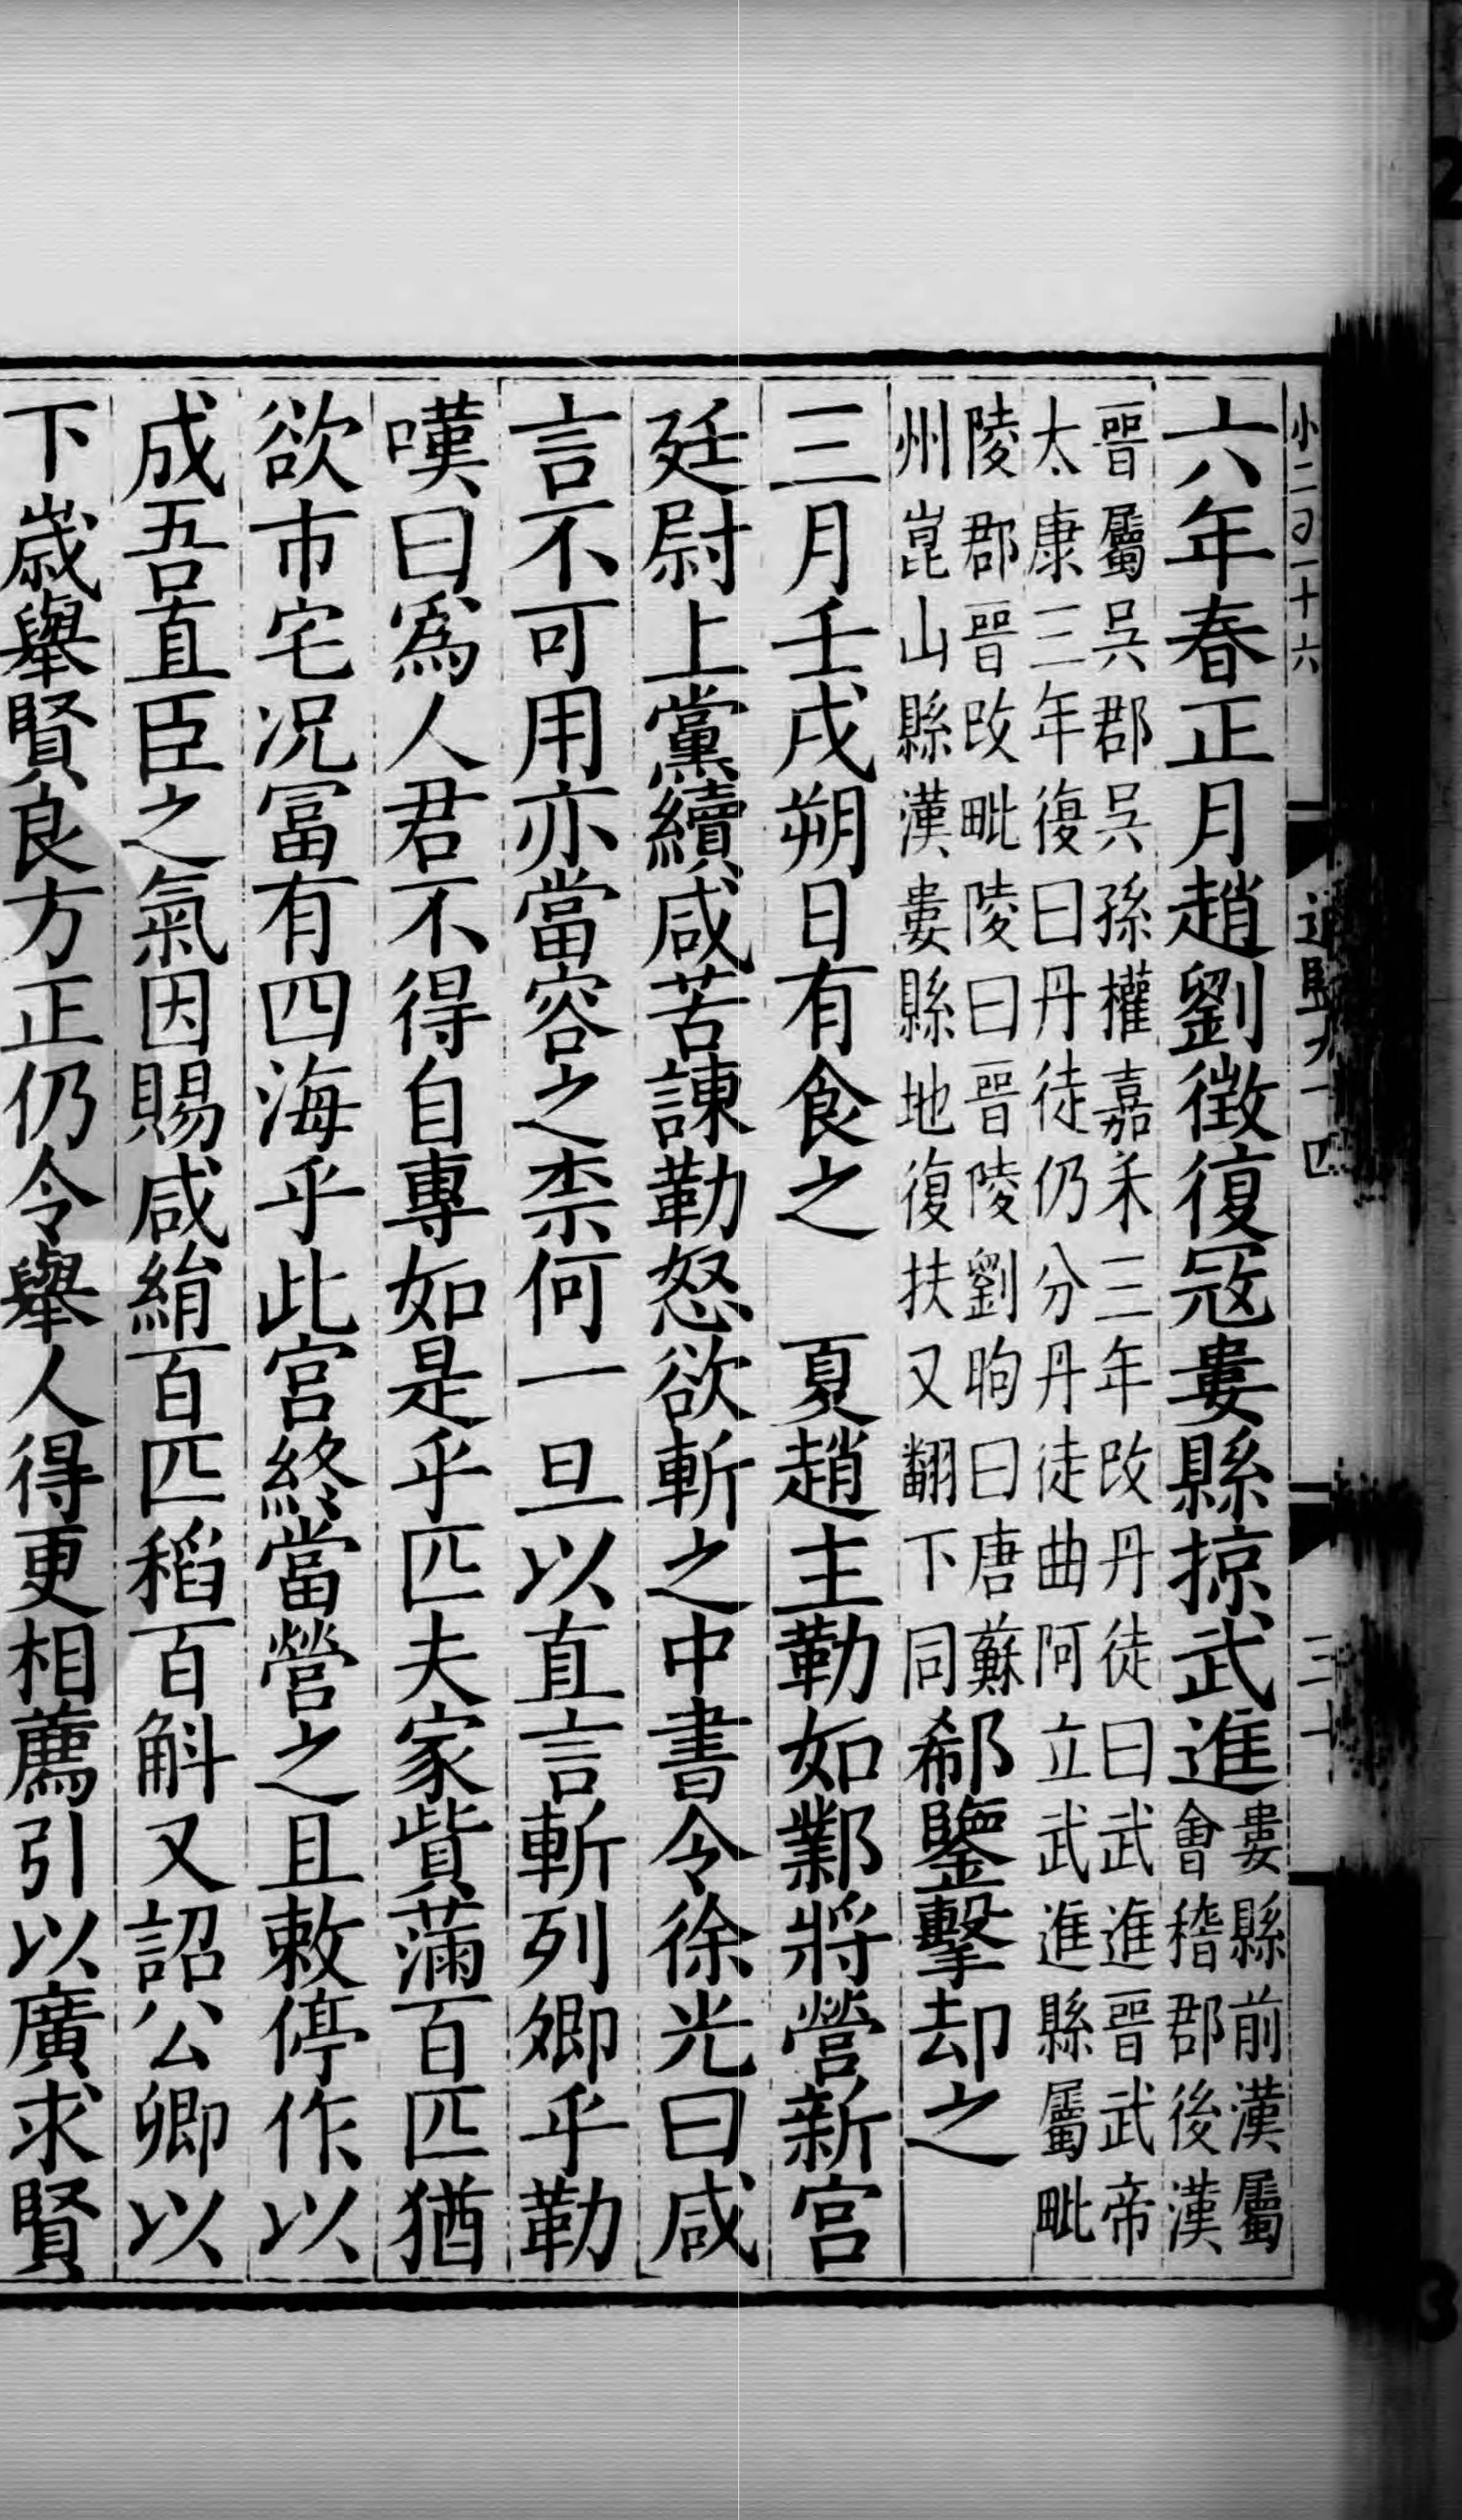 六年春正月趙劉徵復寇婁縣掠武進
婁縣前漢屬
會稽郡後漢
晉屬吳郡吳孫權嘉禾三年改丹徒曰武進晉武帝
太康三年復曰丹徒仍分丹徒曲阿立武進縣屬毗
陵郡晉改毗陵曰晉陵劉昫曰唐蘇
州崑山縣漢婁縣地復扶又翻下同
郗鑒擊却之
三月壬戌朔日有食之　夏趙主勒如鄴將營新宫
廷尉上黨續咸苦諫勒怒欲斬之中書令徐光曰咸
言不可用亦當容之柰何一旦以直言斬列卿乎勒
嘆曰爲人君不得自專如是乎匹夫家貲滿百匹猶
欲市宅况冨有四海乎此宫終當營之且敕停作以
成吾直臣之氣因賜咸絹百匹稻百斛又詔公卿以
下歲舉賢良方正仍令舉人得更相薦引以廣求賢